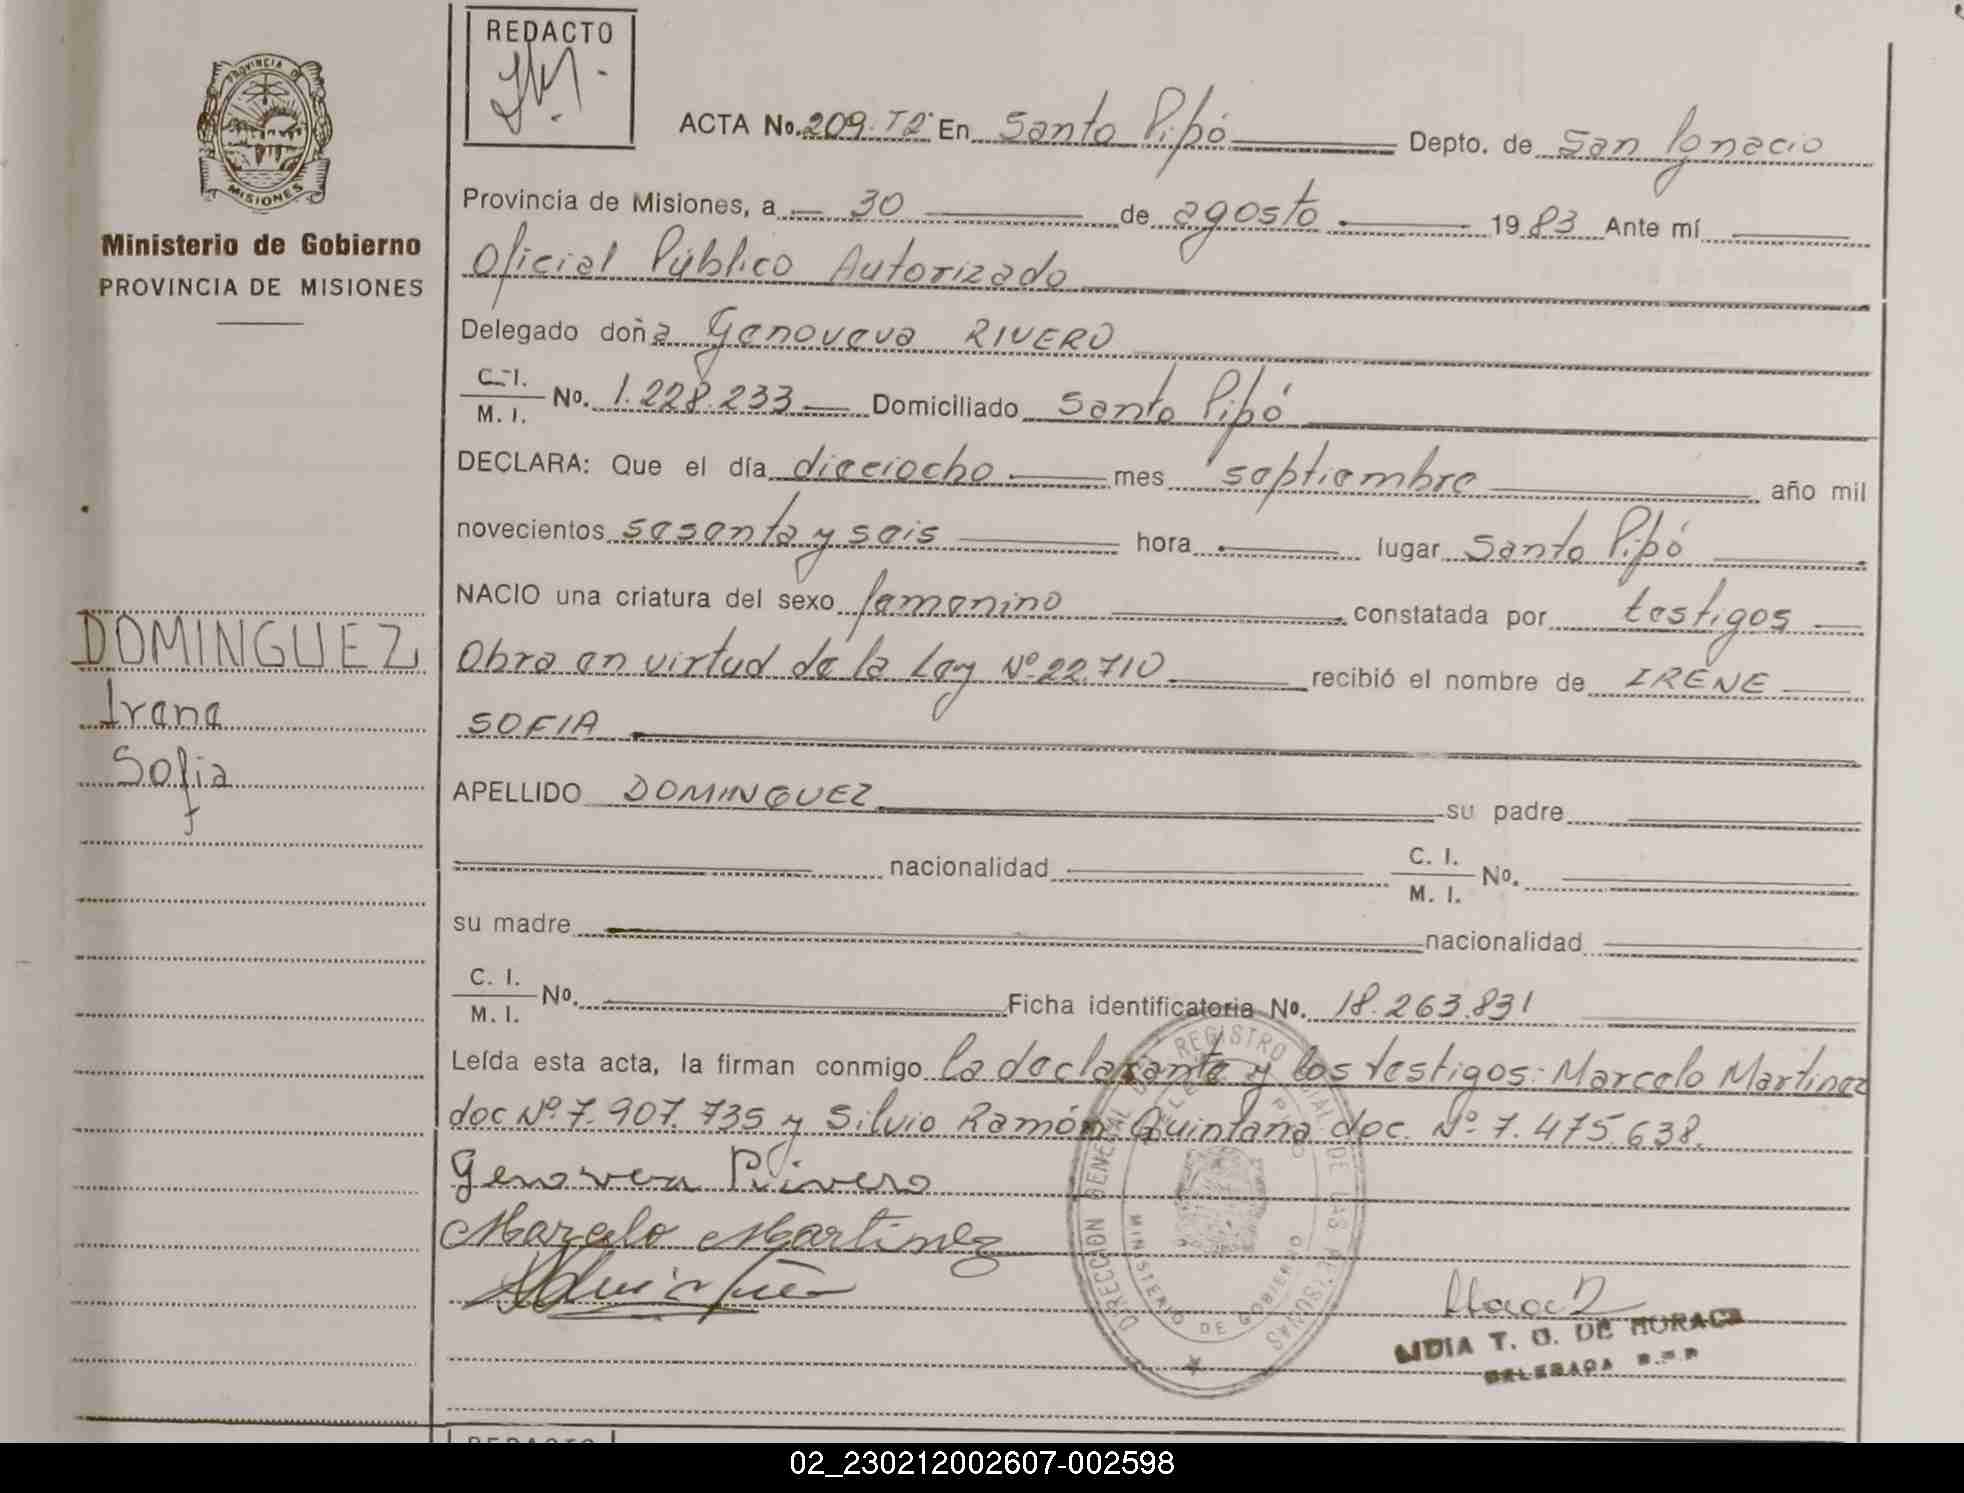 REDACTO
PROVINCIA DE
MISIONES
Ministerio de Gobierno
PROVINCIA DE MISIONES
DOMINGUEZ,
Irene
Sofia
ACTA No. 209. T2º En Santo Pipó Depto. de San Ignacio
Provincia de Misiones, a 30 de agosto 1983 Ante mí
Oficial Público Autorizado
Delegado doña Genoveva RIVERO
C. I. / M. I. No. 1.228.233 Domiciliado Santo Pipó
DECLARA: Que el día dieciocho mes septiembre año mil
novecientos sesenta y seis hora lugar Santo Pipó
NACIO una criatura del sexo femenino constatada por testigos
Obra en virtud de la Ley Nº 22.710 recibió el nombre de IRENE
SOFIA
APELLIDO DOMINGUEZ su padre
nacionalidad C. I. / M. I. No.
su madre nacionalidad
C. I. / M. I. No. Ficha identificatoria No. 18.263.831
Leída esta acta, la firman conmigo la declarante y los testigos: Marcelo Martinez
doc Nº 7.907.735 y Silvio Ramón Quintana doc. Nº 7.475.638.
Genoveva Rivero
Marcelo Martinez
DIRECCION GENERAL DEL REGISTRO PROVINCIAL DE LAS PERSONAS
MINISTERIO DE GOBIERNO
LIDIA T. G. DE HORACZ
DELEGADA R.P.P
REDACTO
02_230212002607-002598